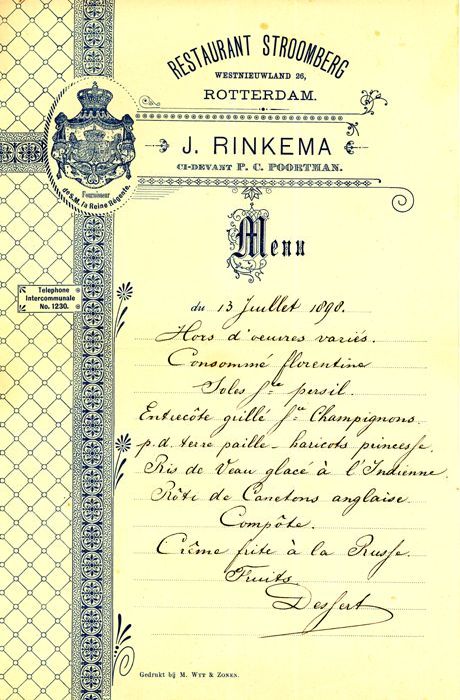 RESTAURANT STROOMBERG
WESTNIEUWLAND 26,
ROTTERDAM.
J. RINKEMA
CI-DEVANT P. C. POORTMAN.
Fournisseur
de S.M. la Reine Régente.
Menu
Telephone
Intercommunale
No. 1230.
du 13 Juillet 1898.
Hors d'oeuvres variés.
Consommé florentine
Soles sce persil.
Entrecôte grillé sce Champignons.
p.d. terre paille - haricots princesse.
Ris de Veau glacé à l'Indienne
Rôti de Canetons anglaise.
Compôte.
Crême frite à la Russe.
Fruits
Dessert
Gedrukt bij M. WYT & ZONEN.